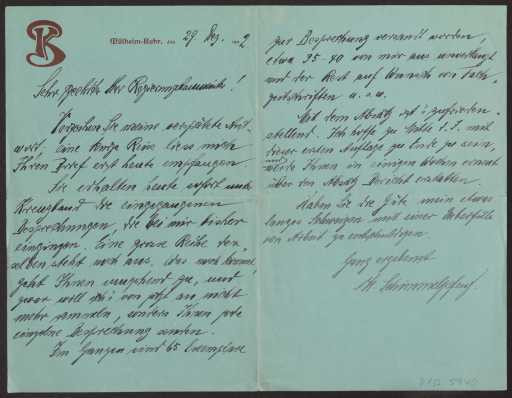 Mülheim-Ruhr, den 29 Dez. 192
Sehr geehrter Herr Regierungsbaumeister!
Verzeihen Sie meine verspätete Ant-
wort. Eine kurze Reise liess mich
Ihren Brief erst heute empfangen.
Sie erhalten heute sofort unter
Kreuzband die eingegangenen
Besprechungen, die bis mir bisher
eingingen. Eine grosse Reihe der-
selben steht noch aus, was noch kommt
geht Ihnen umgehend zu, und
zwar will ich von jetzt an nicht
mehr sammeln, sondern Ihnen jede
einzelne Besprechung senden.
Im Ganzen sind 65 Exemplare
zur Besprechung versandt worden,
etwa 35-40 von mir aus unverlangt
und der Rest auf Wunsch von Fach-
zeitschriften u.s.w.
Mit dem Absatz ist zufrieden-
stellend. Ich hoffe zu Mitte d.J. mit
dieser ersten Auflage zu Ende zu sein,
und werde Ihnen in einigen Wochen erneut
über den Absatz Bericht erstatten.
Haben Sie die Güte mein etwas
langes Schweigen mit einer Ueberfülle
von Arbeit zu entschuldigen.
Ganz ergebenst
Schimmelpfeng